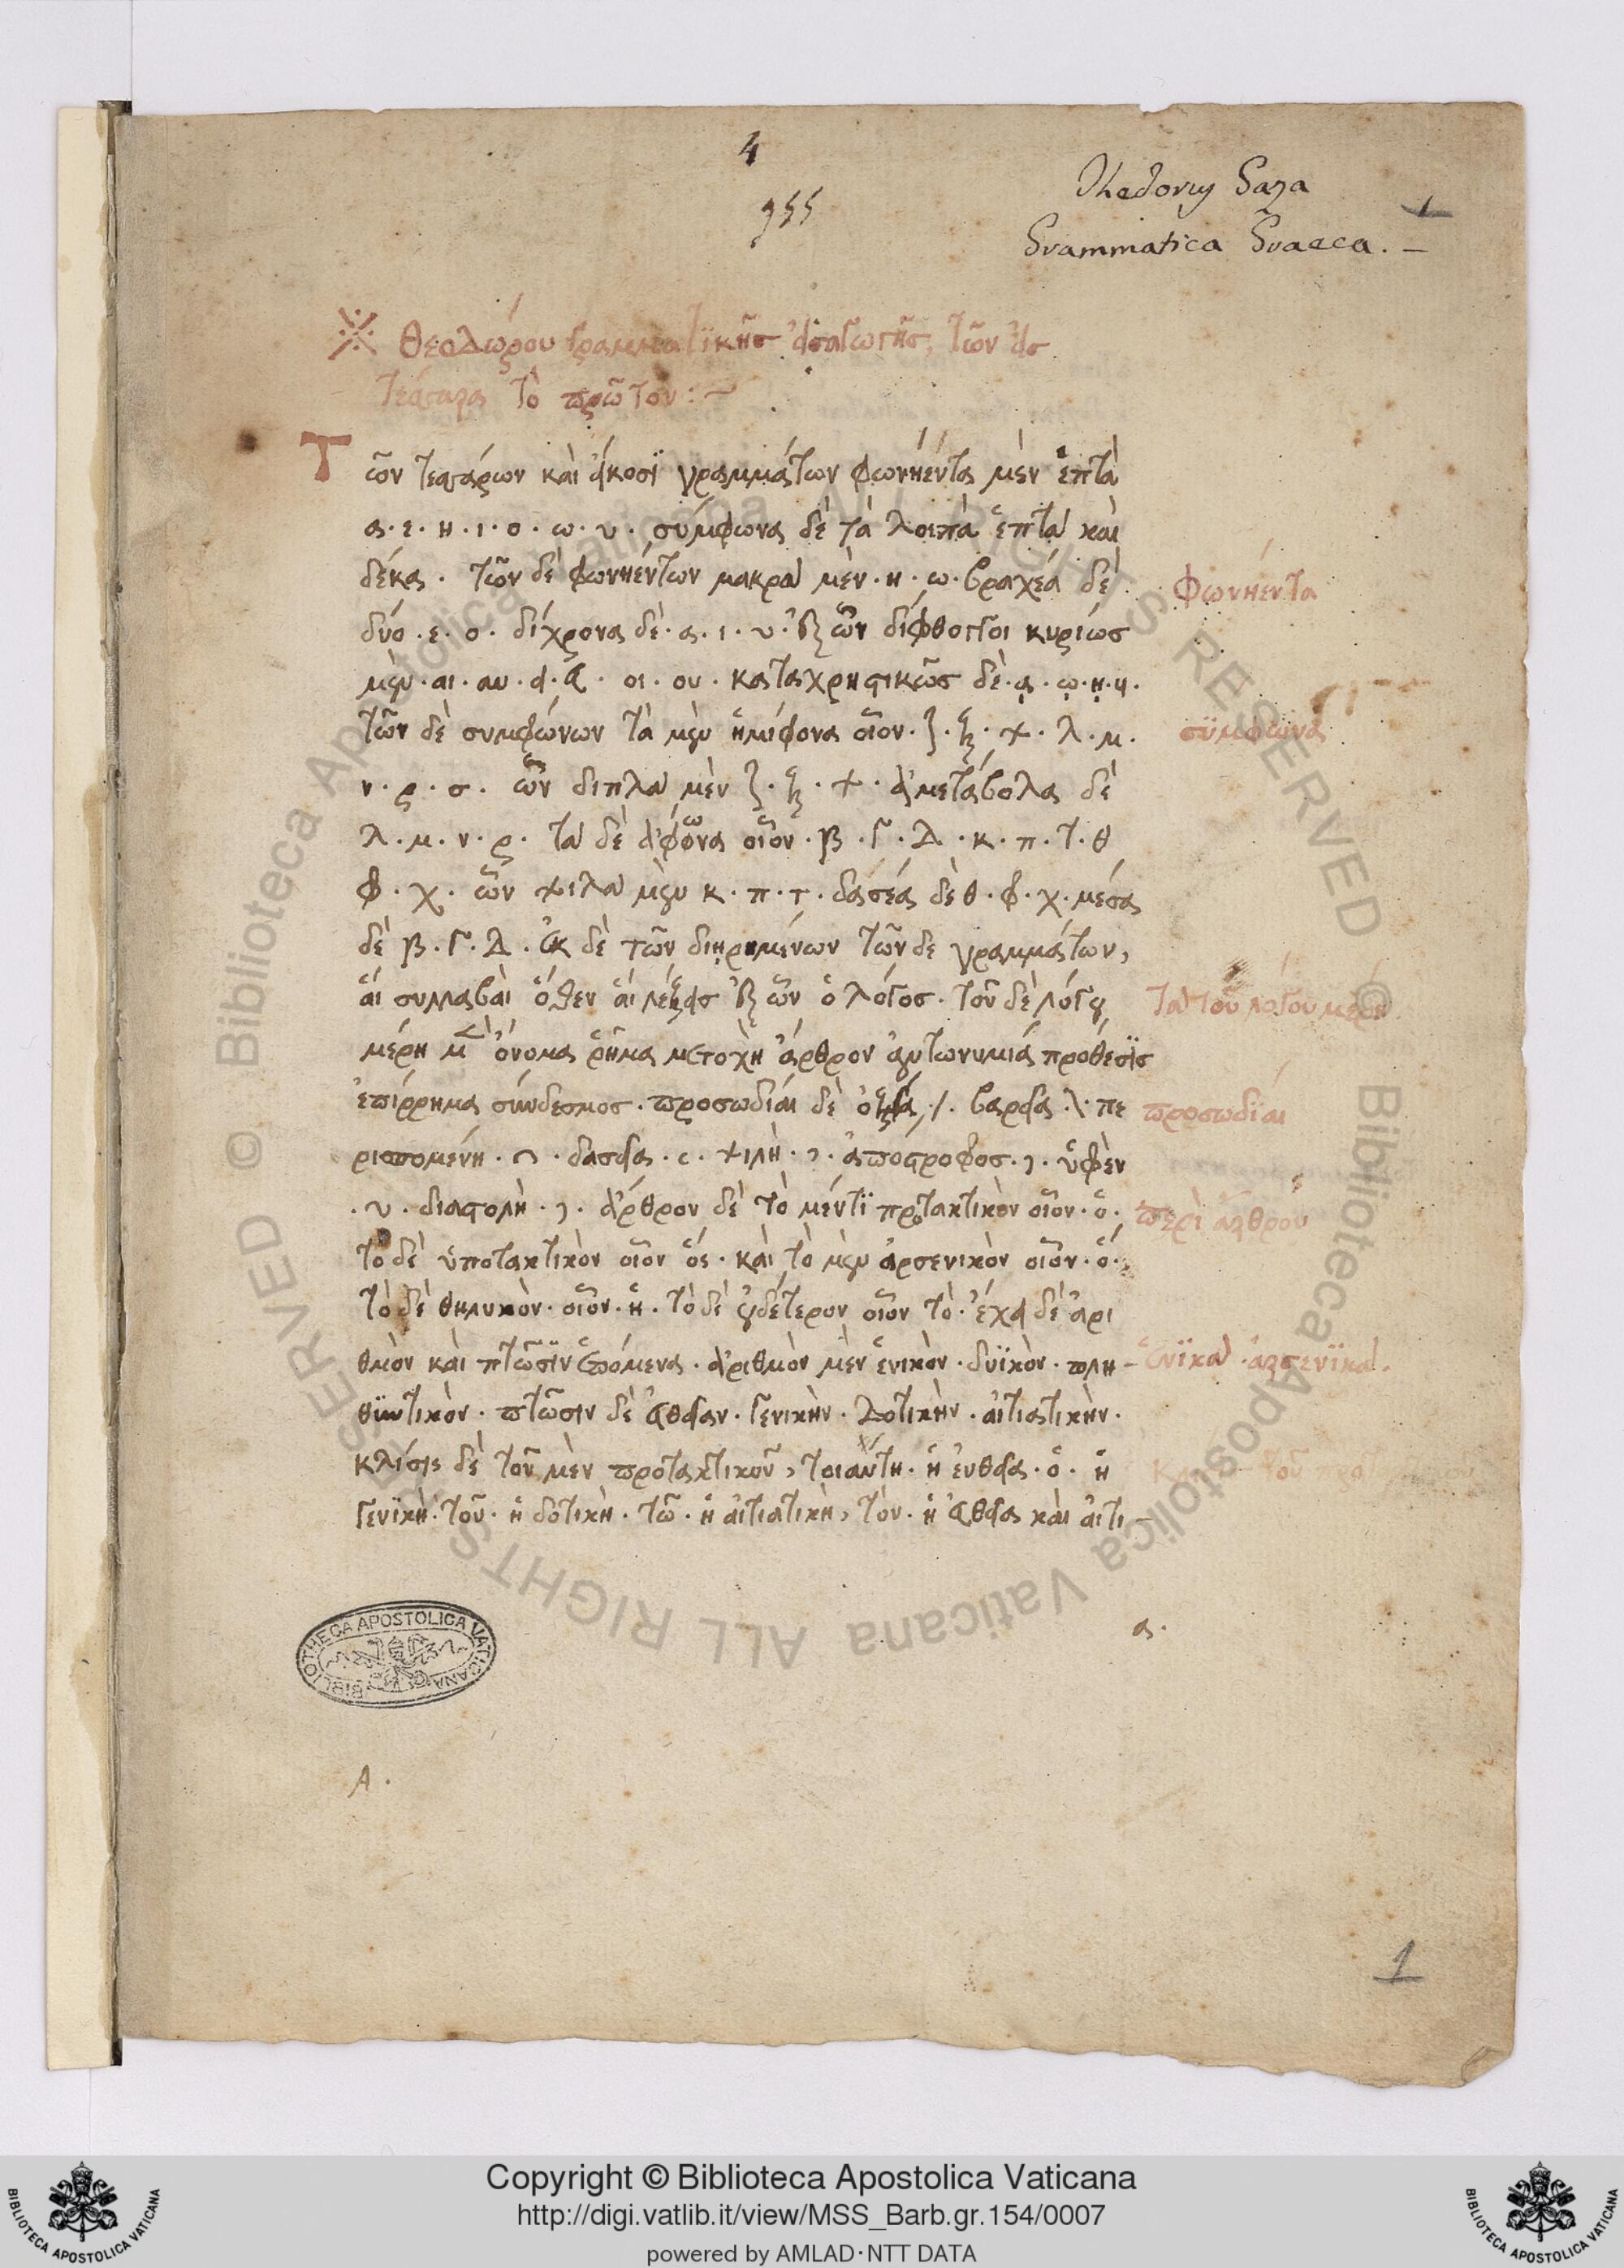 4
955
Thedorus Gaza
Grammatica Graeca. –
1
※ Θεοδώρου γραμματϊκῆς εἰσαγωγῆς, τῶν εἰς
τέσσαρα τὸ πρῶτον :~
Τῶν τεσσάρων καὶ εἴκοσϊ γραμμάτων φωνήέντα μὲν ἑπτὰ
α · ε · η · ι · ο · ω · υ · σύμφωνα δὲ τὰ λοιπὰ ἑπτὰ καὶ
δέκα · τῶν δὲ φωνηέντων μακρὰ μὲν · η · ω · βραχέα δὲ
Φωνήεντα
δύο · ε · ο · δίχρονα δὲ · α · ι · υ · ἐξ ὧν δίφθογγοι κυρίως
μὲν · αι · αυ · ει · ευ · οι · ου · καταχρηστικῶς δὲ · ᾳ · ῳ · ῃ ·
τῶν δὲ συμφώνων τὰ μὲν ἡμίφονα οἷον · ζ · ξ · ψ · λ · μ ·
σϋμφωνα
ν · ρ · σ · ὧν διπλὰ μὲν ζ · ξ · ψ · ἀμετάβολα δὲ
λ · μ · ν · ρ · τὰ δὲ ἄφωνα οἷον · β · γ · δ · κ · π · τ · θ
φ · χ · ὧν ψιλὰ μὲν κ · π · τ · δασέα δὲ θ · φ · χ · μέσα
δὲ β · γ · δ · ἐκ δὲ τῶν διῃρημένων τῶν δε γραμμάτων,
ἁι συλλαβὰι ὅθεν ἁι λέξεις ἐξ ὧν ὁ λόγος · τοῦ δὲ λόγου
Τὰ τοῦ λόγου μέρη
μέρη ὄνομα ῥῆμα μετοχὴ ἄρθρον ἀντωνυμία προθέσϊς
ἐπίρρημα σύνδεσμος · προσωδίαι δὲ ὀξεῖα, /. βαρεῖα · \ · πε
προσωδίαι
ρισπομένη · ͡ · δασεῖα · c · ψιλὴ · ɔ · ἀπόστροφος · ɔ · ὑφὲν
· υ · διαστολὴ · ɔ · ἄρθρον δὲ τὸ μέντϊ προτακτικὸν οἷον · ὁ ·
περὶ ἄρθρου
τὸ δὲ ὑποτακτικὸν οἷον ὅς · καὶ τὸ μὲν ἀρσενικὸν οἷον · ὁ ·
τὸ δὲ θηλυκὸν · οἷον · ἡ · τὸ δὲ οὐδέτερον οἷον τὸ · ἔχει δὲ ἀρι
θμὸν καὶ πτῶσϊν ἑπόμενα · ἀριθμὸν μὲν ἑνικὸν · δυϊκὸν · πλη –
ἑνϊκὰ · ἀρσενϊκὰ ·
θϋντικὸν · πτῶσιν δὲ εὐθεῖαν · γενικὴν · δοτικὴν · αἰτιατικὴν ·
κλίσις δὲ τοῦ μὲν προτακτικοῦ, τοιαύτη · ἡ ἐυθεῖα · ὁ · ἡ
γενϊκὴ · τοῦ · ἡ δοτικὴ · τῶ · ἡ αἰτιατικὴ, τὸν · ἡ εὐθεῖα καὶ αἰτι –
α ·
BIBLIOTHECA APOSTOLICA VATICANA
A ·
1
Biblioteca Apostolica Vaticana ALL RIGHTS RESERVED ©
Copyright © Biblioteca Apostolica Vaticana
http://digi.vatlib.it/view/MSS_Barb.gr.154/0007
powered by AMLAD·NTT DATA
BIBLIOTECA APOSTOLICA VATICANA
BIBLIOTECA APOSTOLICA VATICANA